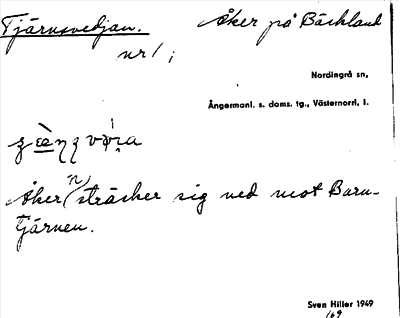 Tjärnsvedjan. Åker på Bäckland
nr 1;
Nordingrå sn,
Ångermanl. s. doms. tg., Västernorrl. l.
Åker(n) sträcker sig ned mot Barn-
tjärnen.
Sven Hiller 1949
169